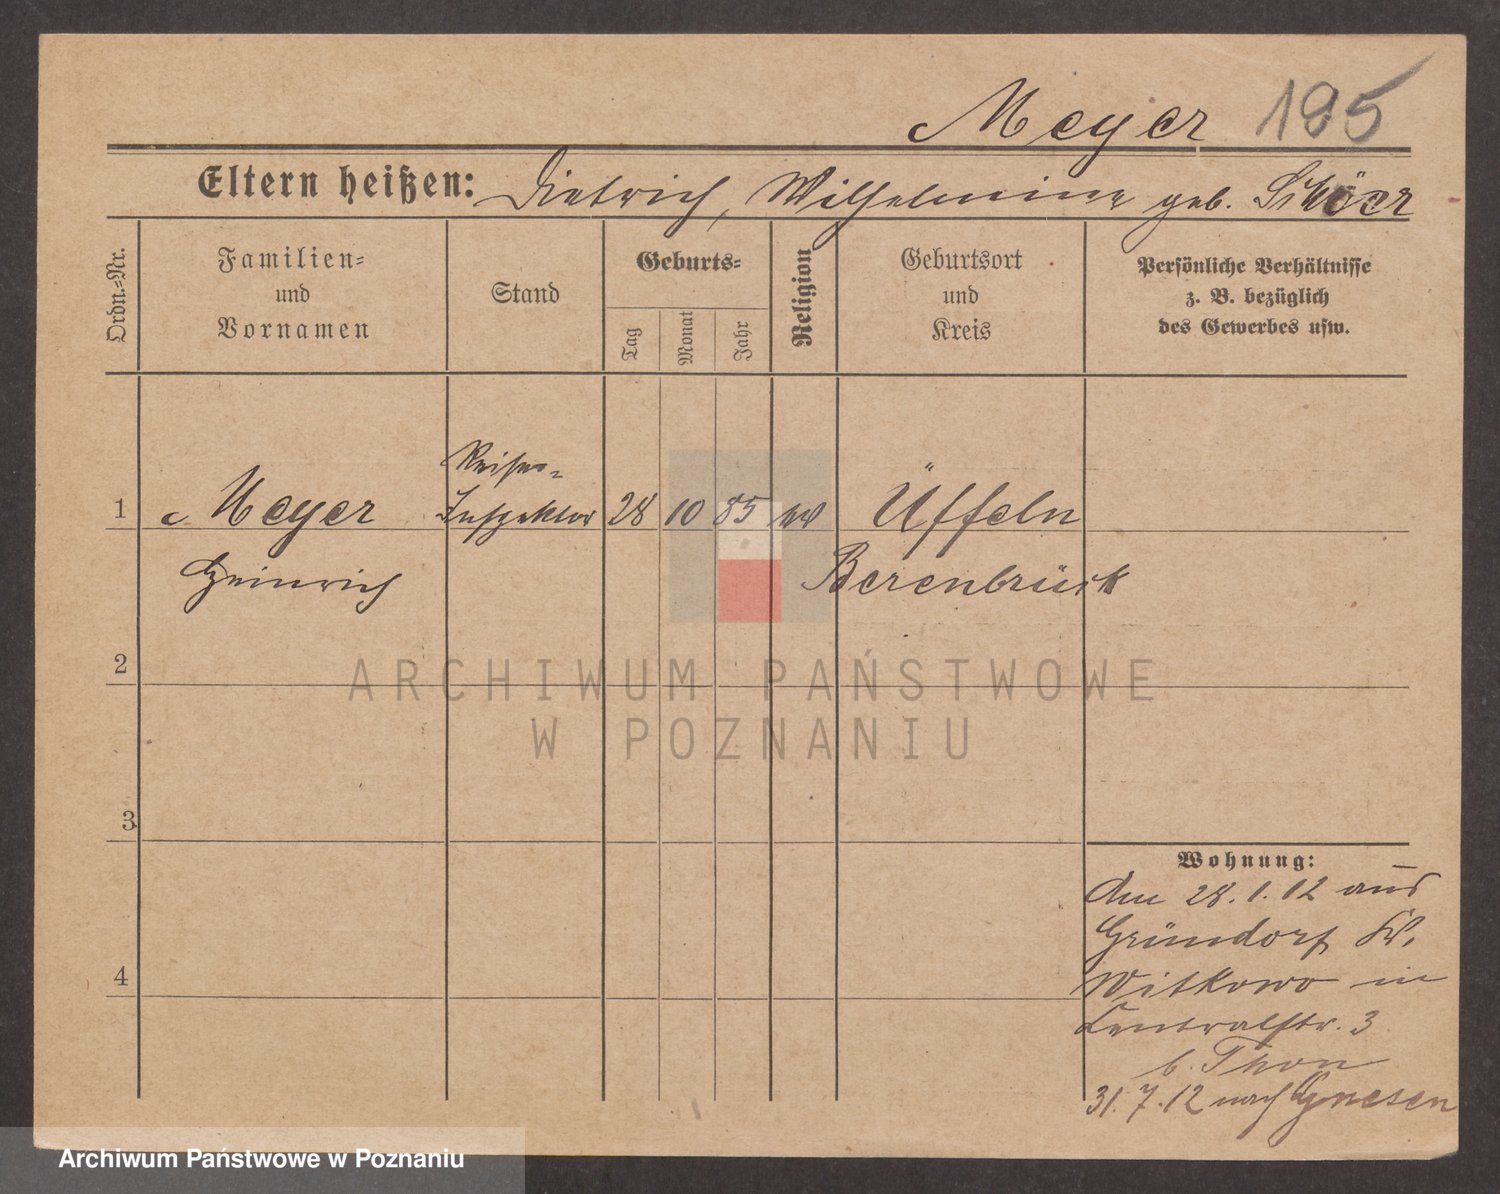 Meyer 195
Eltern heißen: Dietrich, Wilhelmine geb. Schöer
Ordn.-Nr.
Familien-
und
Vornamen
Stand
Geburts-
Tag
Monat
Jahr
Religion
Geburtsort
und
Kreis
Persönliche Verhältnisse
z. B. bezüglich
des Gewerbes usw.
Reise-
1 Meyer Inspektor 28 10 85 Üffeln
Heinrich Berenbrück
2
3
4
Wohnung:
Am 28.1.12 aus
Gründorf Kr.
Witkowo in
Centralstr. 3
b. Thon
31.7.12 nach Gnesen
ARCHIWUM PAŃSTWOWE
W POZNANIU
Archiwum Państwowe w Poznaniu